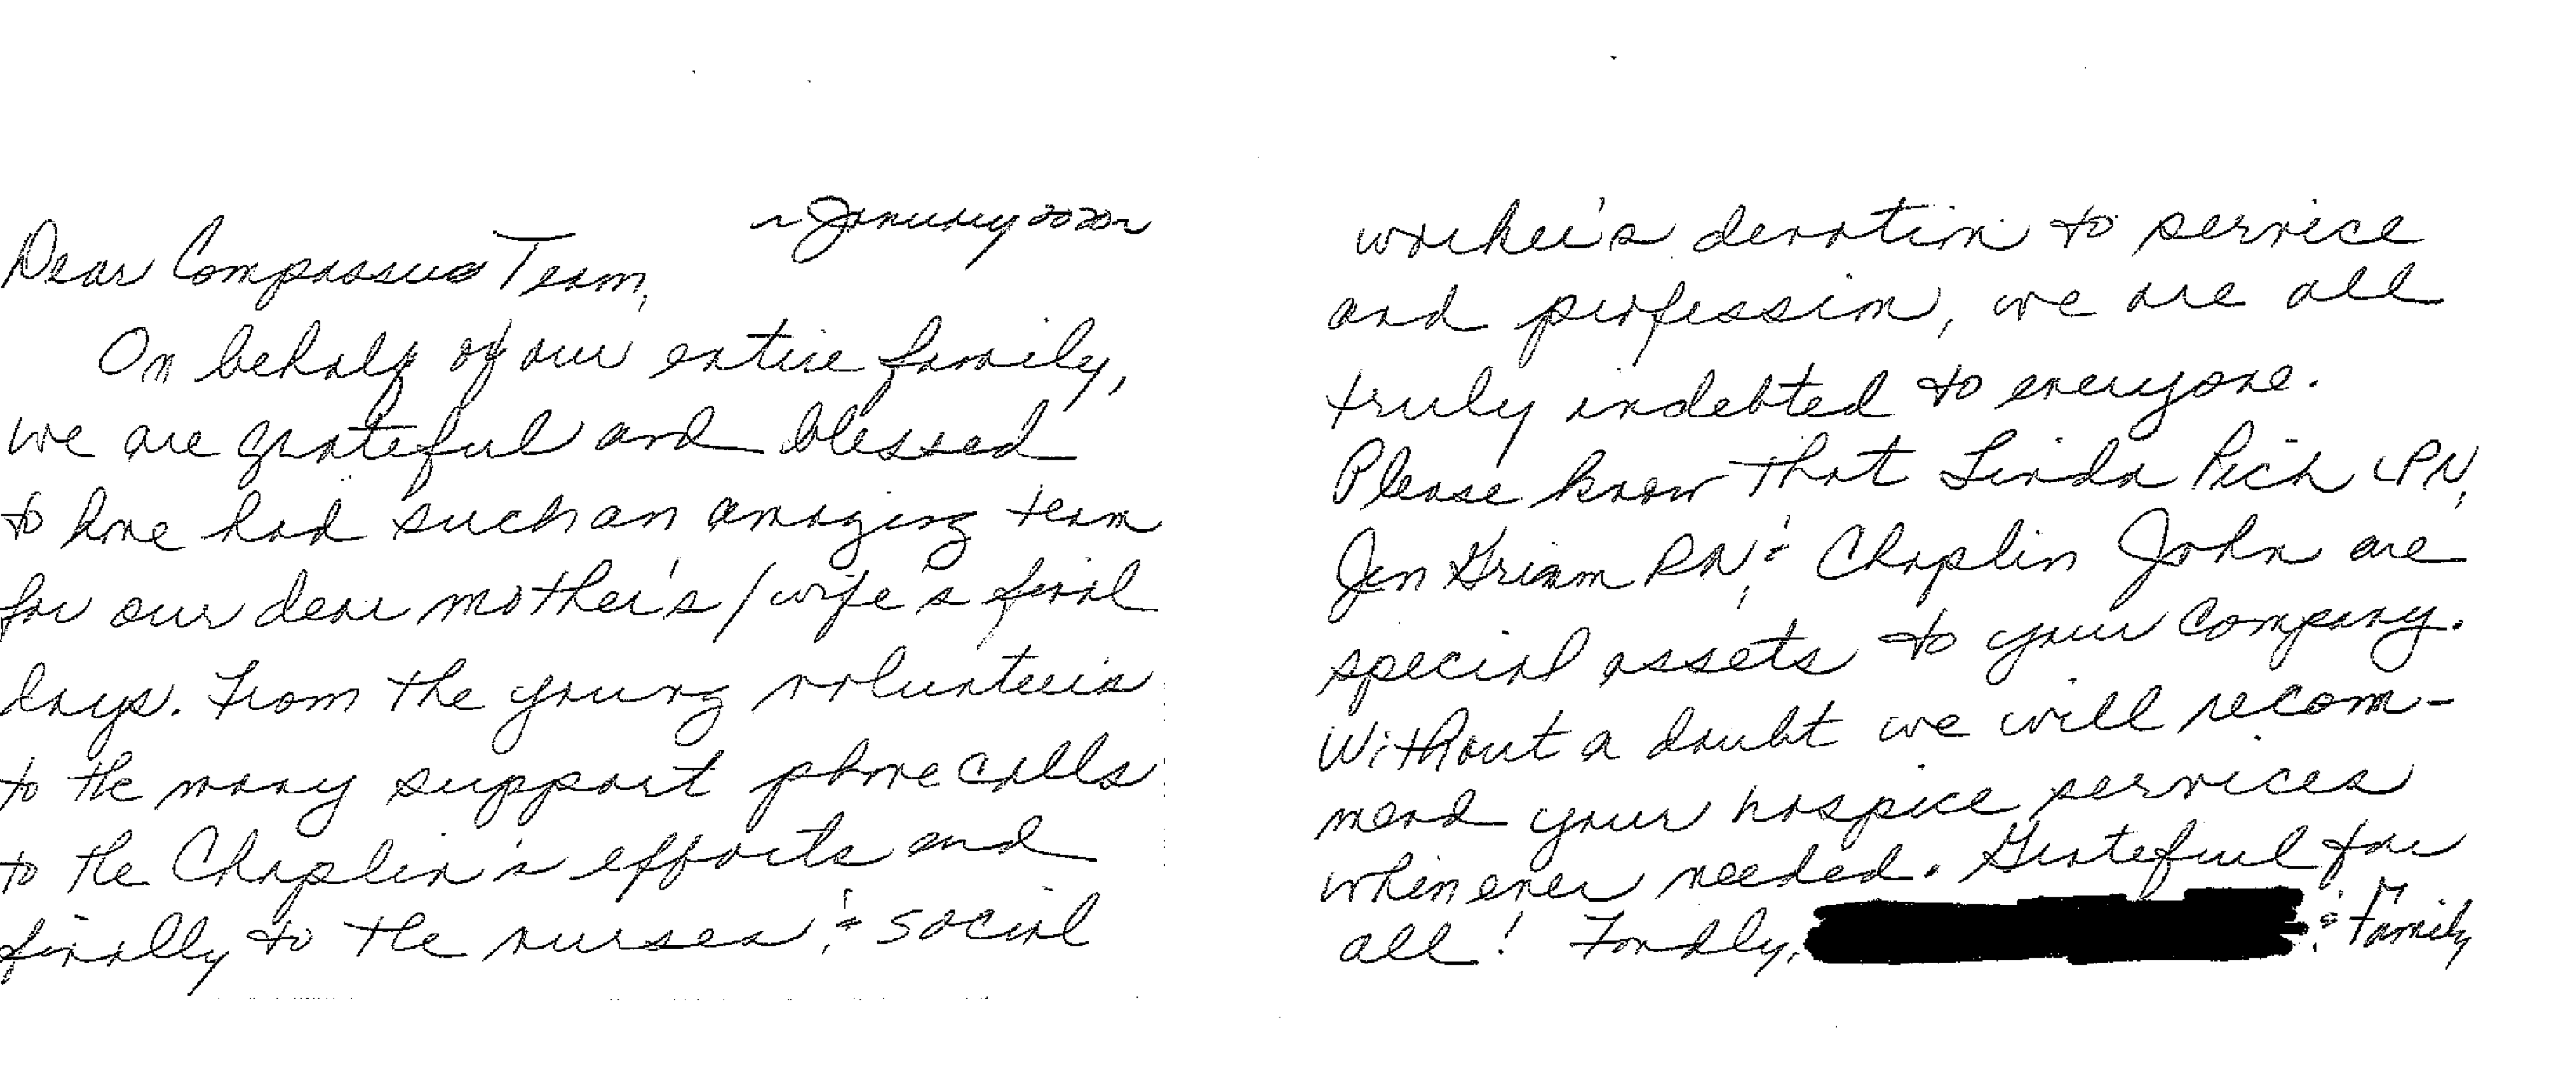 ~ January 2020 ~
Dear Compassus Team,
On behalf of our entire family,
we are grateful and blessed
to have had such an amazing team
for our dear mother's / wife's final
days. From the young volunteers
to the many support phone calls
to the Chaplin's efforts and
finally to the nurses, & social
worker's devotion to service
and profession, we are all
truly indebted to everyone.
Please know that Linda Pich LPN,
Jen Grimm RN, & Chaplin John are
special assets to your company.
Without a doubt we will recom-
mend your hospice services
whenever needed. Grateful for
all! Fondly, & Family